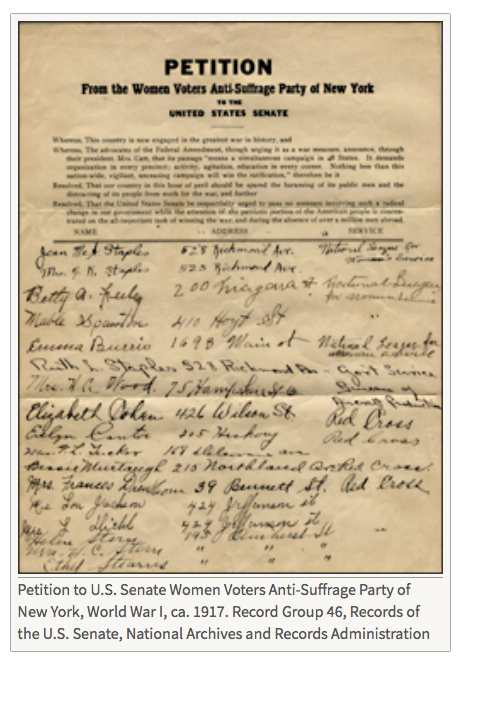 PETITION
From the Women Voters Anti-Suffrage Party of New York
TO THE
UNITED STATES SENATE
Whereas, This country is now engaged in the greatest war in history, and
Whereas, The advocates of the Federal Amendment, though urging it as a war measure, announce, through
their president, Mrs. Catt, that its passage "means a simultaneous campaign in 48 States. It demands
organization in every precinct; activity, agitation, education in every corner. Nothing less than this
nation-wide, vigilant, unceasing campaign will win the ratification," therefore be it
Resolved, That our country in this hour of peril should be spared the harassing of its public men and the
distracting of its people from work for the war, and further
Resolved, That the United States Senate be respectfully urged to pass no measure involving such a radical
change in our government while the attention of the patriotic portion of the American people is concen-
trated on the all-important task of winning the war, and during the absence of over a million men abroad.
NAME ADDRESS SERVICE
Jean Staples 528 Richmond Ave. National League for
Woman's Service
Mrs. Staples 525 Richmond Ave.
Betty A. 200 Niagara St National League
for
Mable 410 Hoyt St "
Emma Burris 1698 Main st National League for
Ruth Staples 528 Richmond Gov't Service
Mrs. Wood. 75 Bureau of
Elizabeth 426 Wilson St. Red Cross
Evelyn Cantor Hickory Red Cross
Tucker 168 Delaware
Bessie 215 Northland Red Cross
Mrs. Frances 39 Burnett St. Red Cross
Jackson 424 Jefferson st
Mrs. L 424 Jefferson st
Helen Stern 193 St
Mrs. W. C. Stern " " "
Ethel Stearns " " "
Petition to U.S. Senate Women Voters Anti-Suffrage Party of
New York, World War I, ca. 1917. Record Group 46, Records of
the U.S. Senate, National Archives and Records Administration